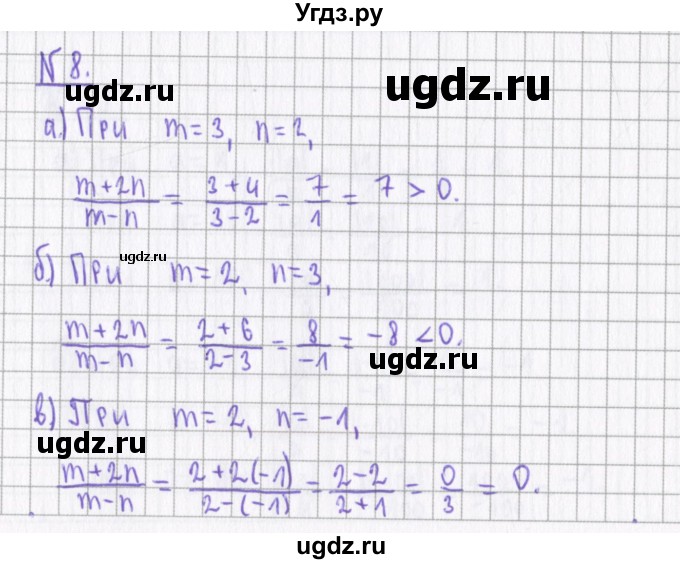 Угдз.ру
N 8.
ugdz.ru ugdz.ru
а) При m = 3, n = 2,
(m+2n)/(m-n) = (3+4)/(3-2) = 7/1 = 7 > 0.
ugdz.ru
б) При m = 2, n = 3,
(m+2n)/(m-n) = (2+6)/(2-3) = 8/-1 = -8 < 0.
ugdz.ru
в) При m = 2, n = -1,
ugdz.ru
(m+2n)/(m-n) = (2+2(-1))/(2-(-1)) = (2-2)/(2+1) = 0/3 = 0.
ugdz.ru